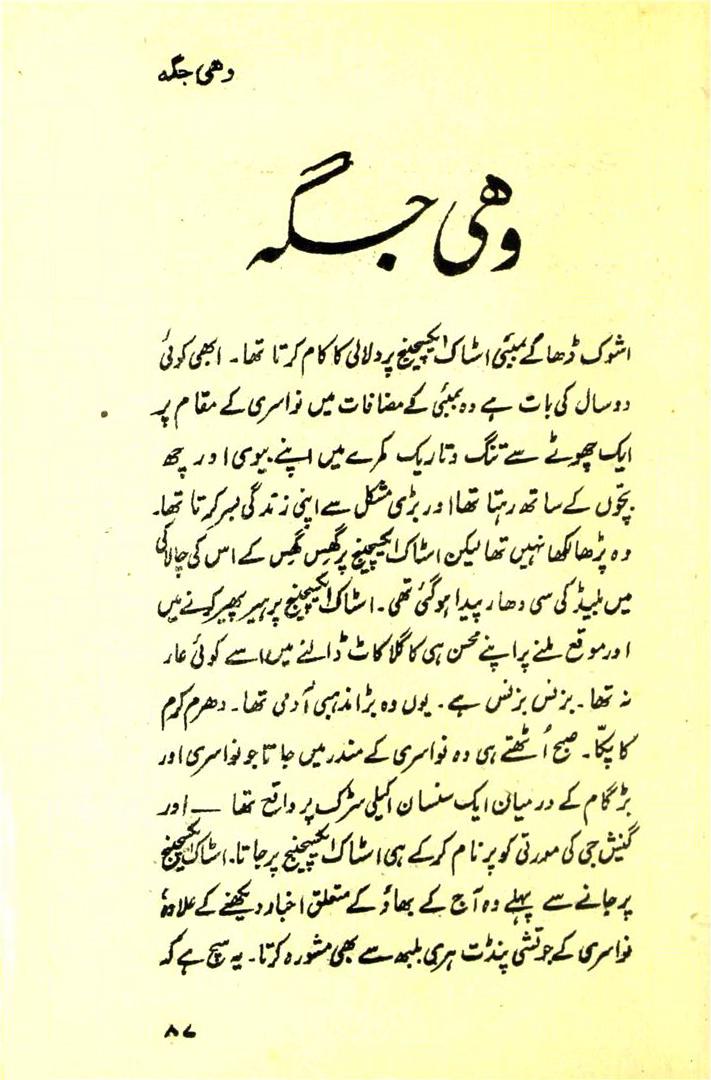 وھی جگہ
وھی جگہ
اشوک ڈھاگے بمبئی اسٹاک ایکسچینج پر دلالی کا کام کرتا تھا۔ ابھی کوئی
دو سال کی بات ہے وہ بمبئی کے مضافات میں نواسری کے مقام پر
ایک چھوٹے سے تنگ و تاریک کمرے میں اپنے بیوی اور چھ
بچّوں کے ساتھ رہتا تھا اور بڑی مشکل سے اپنی زندگی بسر کرتا تھا۔
وہ پڑھا لکھا نہیں تھا لیکن اسٹاک ایکسچینج پر گھِس گھِس کے اس کی چالاکی
میں بلیڈ کی سی دھار پیدا ہو گئی تھی۔ اسٹاک ایکسچینج پر ہیر پھیر کرنے میں
اور موقع ملنے پر اپنے محسن ہی کا گلا کاٹ ڈالنے میں اسے کوئی عار
نہ تھا۔ بزنس بزنس ہے۔ یوں وہ بڑا مذہبی آدمی تھا۔ دھرم کرم
کا پکّا۔ صبح اُٹھتے ہی وہ نواسری کے مندر میں جاتا جو نواسری اور
بڑگام کے درمیان ایک سنسان اکیلی سڑک پر واقع تھا — اور
گنیش جی کی مورتی کو پرنام کرکے ہی اسٹاک ایکسچینج پر جاتا۔ اسٹاک ایکسچینج
پر جانے سے پہلے وہ آج کے بھاؤ کے متعلق اخبار دیکھنے کے علاوہ
نواسری کے جوتشی پنڈت ہری بلبھ سے بھی مشورہ کرتا۔ یہ سچ ہے کہ
۸۷